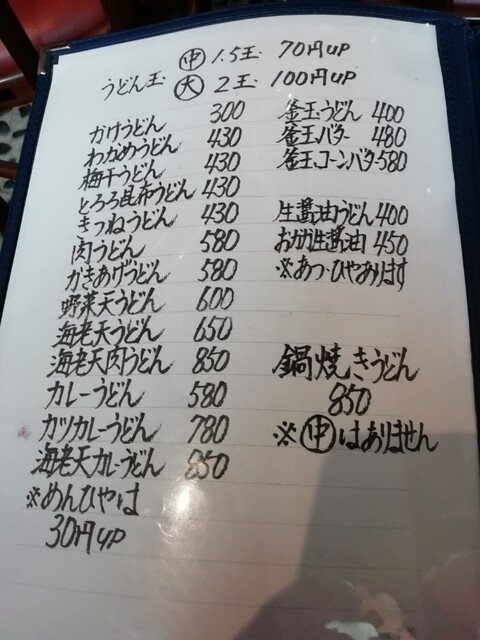 うどん玉 ㊥ 1.5玉 70円UP
㊅ 2玉 100円UP
かけうどん 300
わかめうどん 430
梅干うどん 430
とろろ昆布うどん 430
きつねうどん 430
肉うどん 580
かきあげうどん 580
野菜天うどん 600
海老天うどん 650
海老天肉うどん 850
カレーうどん 580
カツカレーうどん 780
海老天カレーうどん 850
※めんひやは
30円UP
釜玉うどん 400
釜玉バター 480
釜玉コーンバター 580
生醤油うどん 400
おかか生醤油 450
※あつ・ひやあります
鍋焼きうどん
850
※㊥はありません